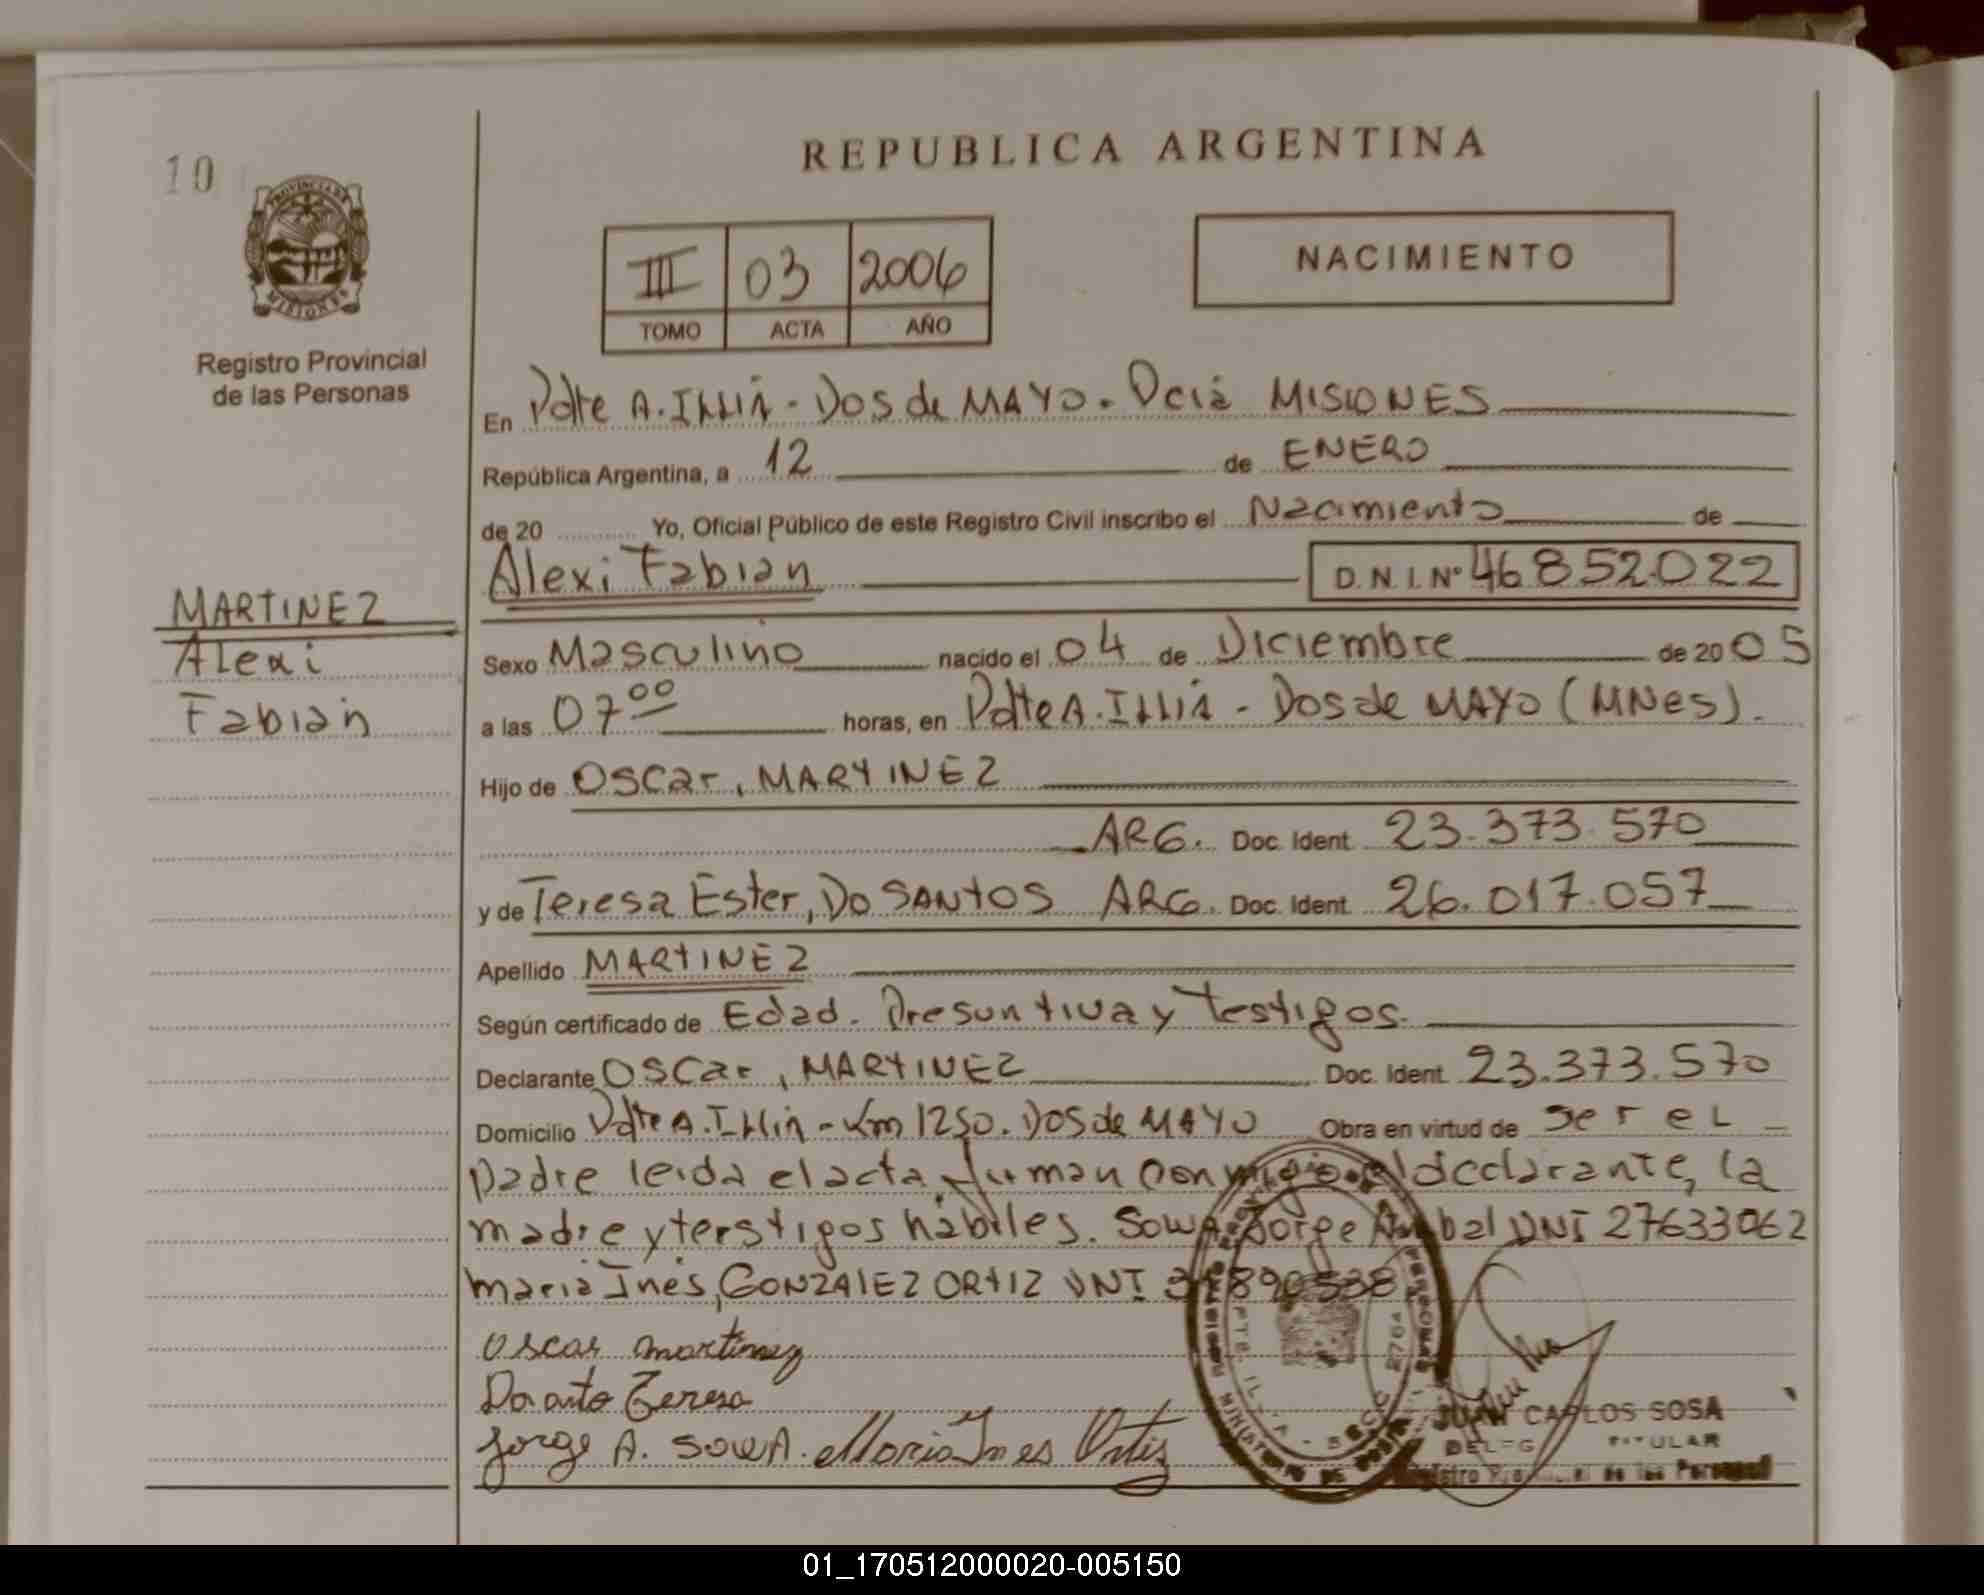 10
REPUBLICA ARGENTINA
PROVINCIA DE MISIONES
Registro Provincial
de las Personas
III 03 2006
TOMO ACTA AÑO
NACIMIENTO
En Pdte A. Illia - Dos de MAYO - Pcia MISIONES
República Argentina, a 12 de ENERO
de 20 Yo, Oficial Público de este Registro Civil inscribo el Nacimiento de
Alexi Fabian D.N.I.Nº 46852022
MARTINEZ
Alexi
Fabian
Sexo Masculino nacido el 04 de Diciembre de 2005
a las 07 00 horas, en Pdte A. Illia - Dos de MAYO (MNes).
Hijo de Oscar, MARTINEZ
ARG. Doc. Ident. 23.373.570
y de Teresa Ester, Do SANTOS ARG. Doc. Ident. 26.017.057
Apellido MARTINEZ
Según certificado de Edad. Presuntiva y Testigos.
Declarante Oscar, MARTINEZ Doc. Ident. 23.373.570
Domicilio Pdte A. Illia - Km 1250. Dos de MAYO Obra en virtud de ser el
padre leida el acta, firman conmigo el declarante, la
madre y terstigos habiles. Sowa, Jorge Anibal DNI 27633062
Maria Inés, GONZALEZ ORTIZ DNI
Oscar Martinez
Teresa
Jorge A. SOWA. Maria Ines Ortiz
JUAN CARLOS SOSA
TITULAR
Registro Provincial de las Personas
01_170512000020-005150